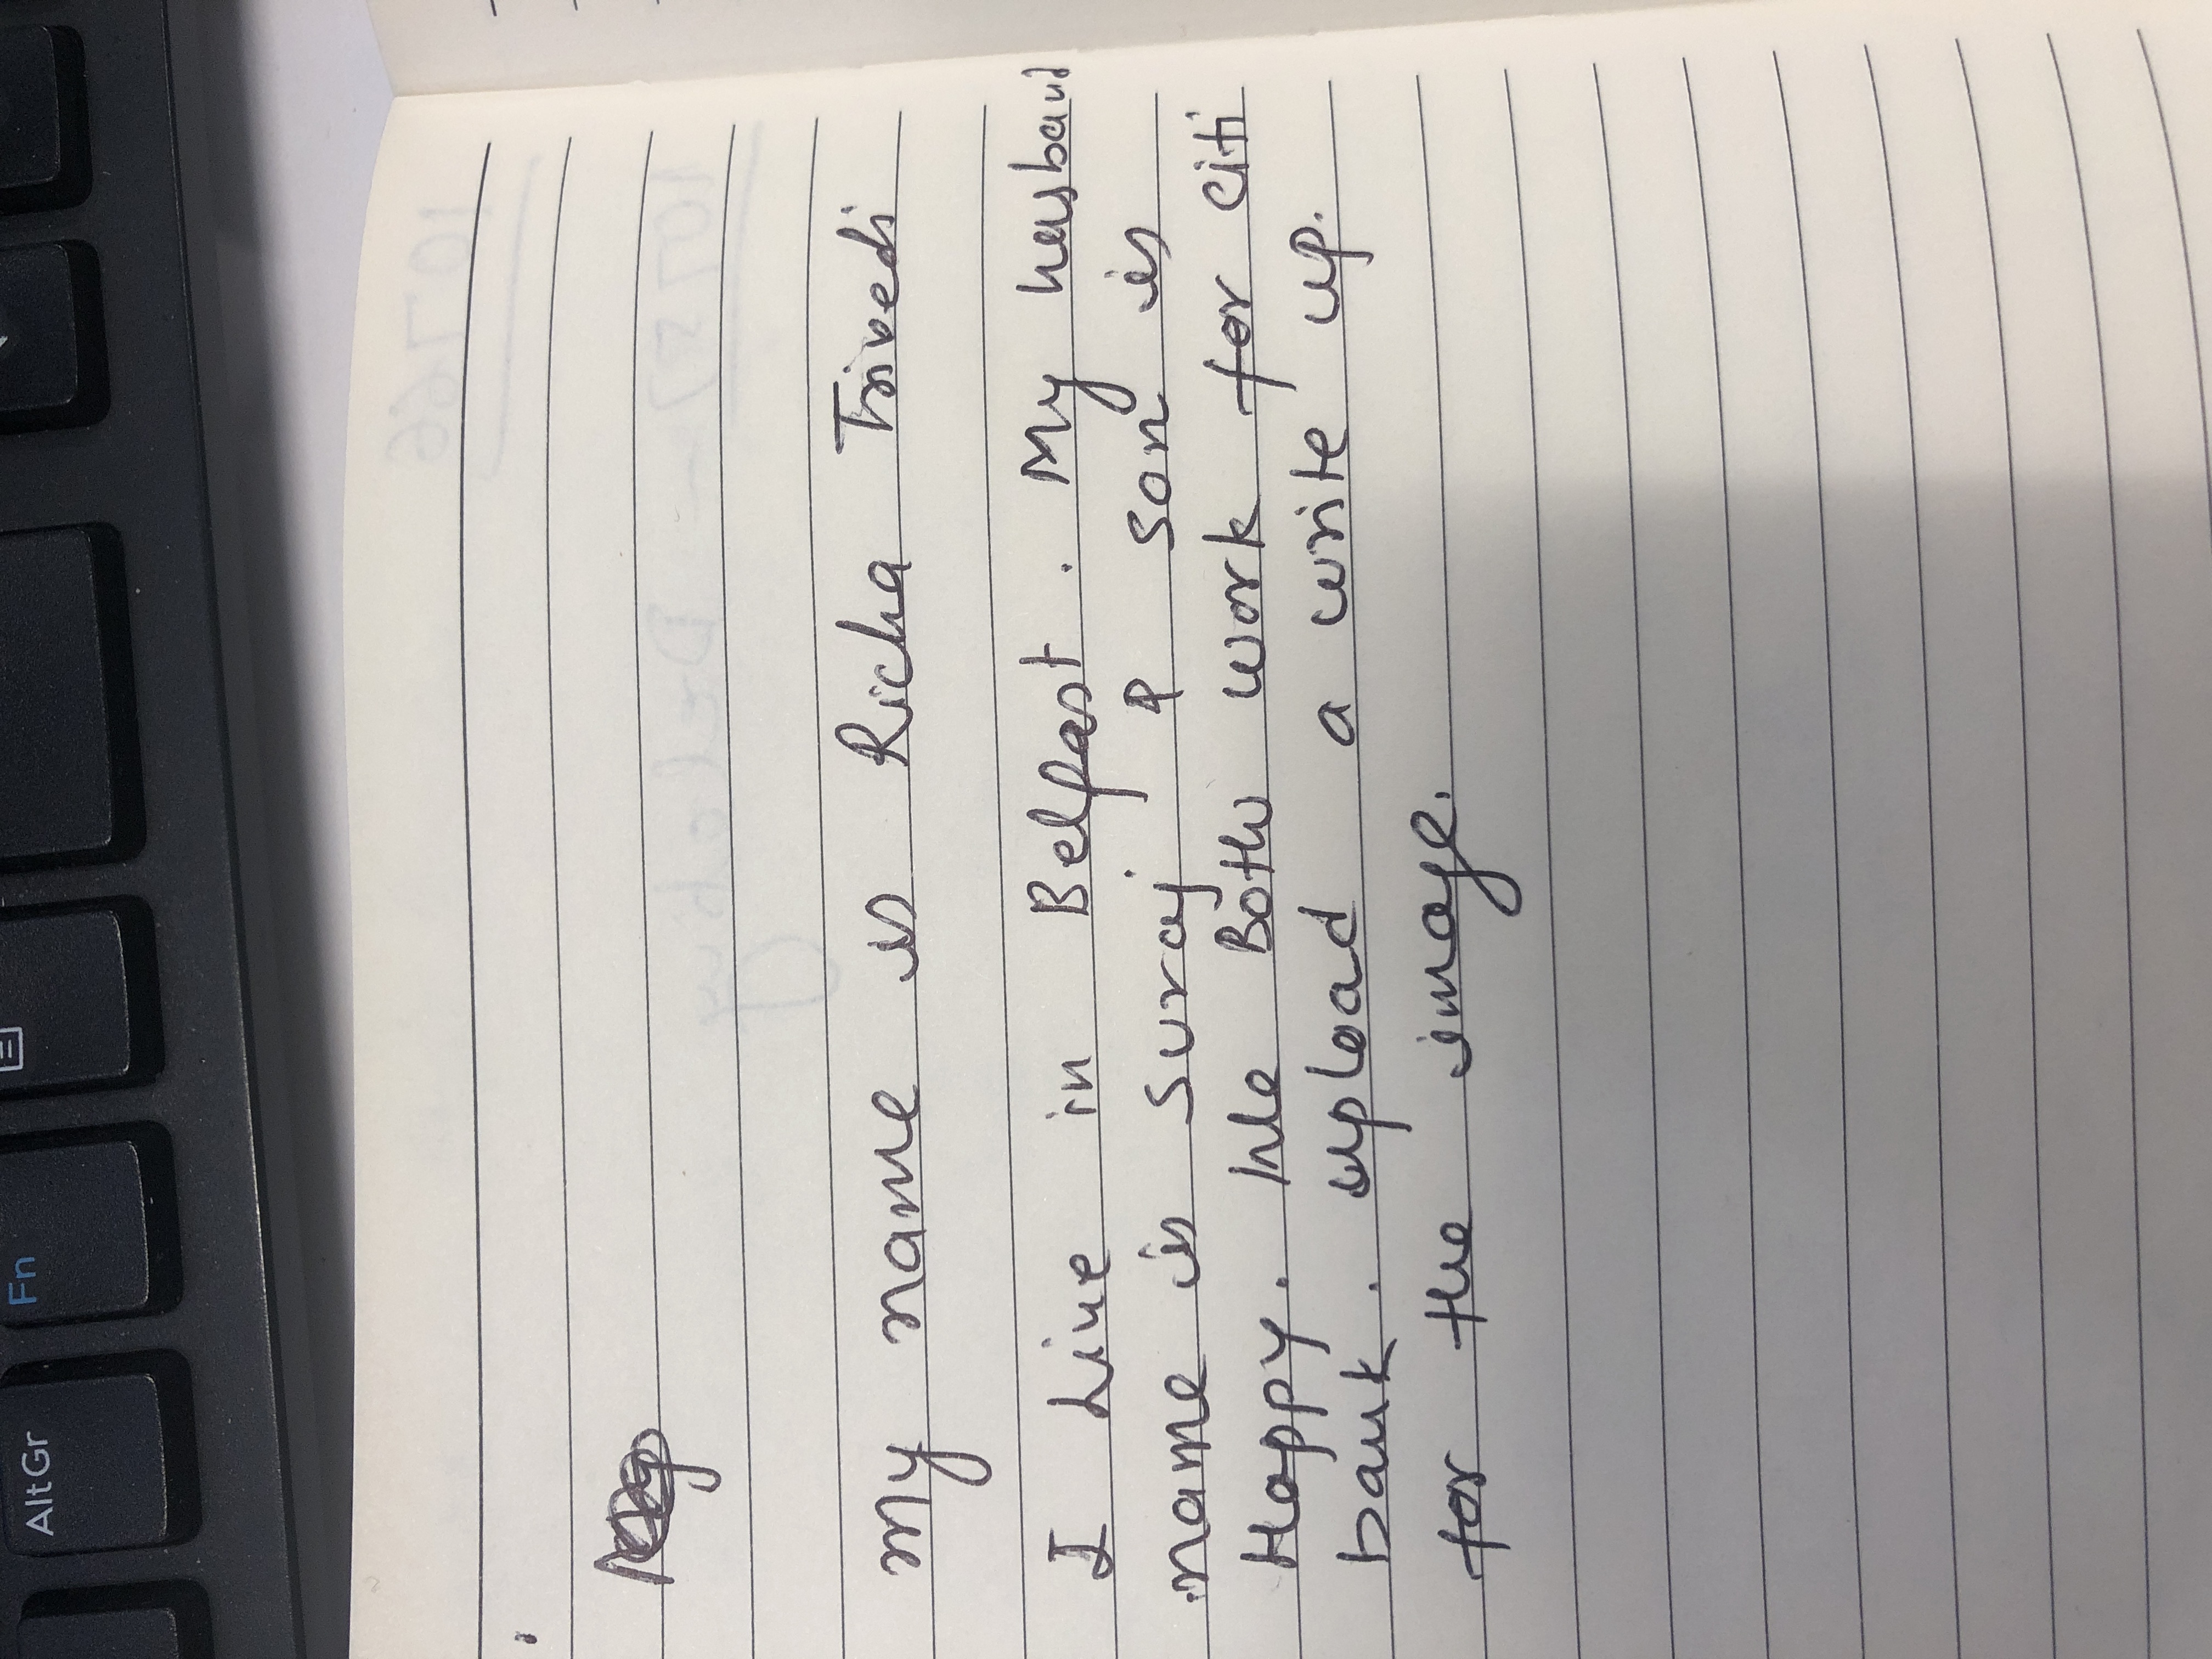 My name is Richa Trivedi
I Live in Belfast. My husband
name is Suraj. & son is
Happy. We Both work for Citi
bank. upload a write up.
for the image.
Fn
AltGr